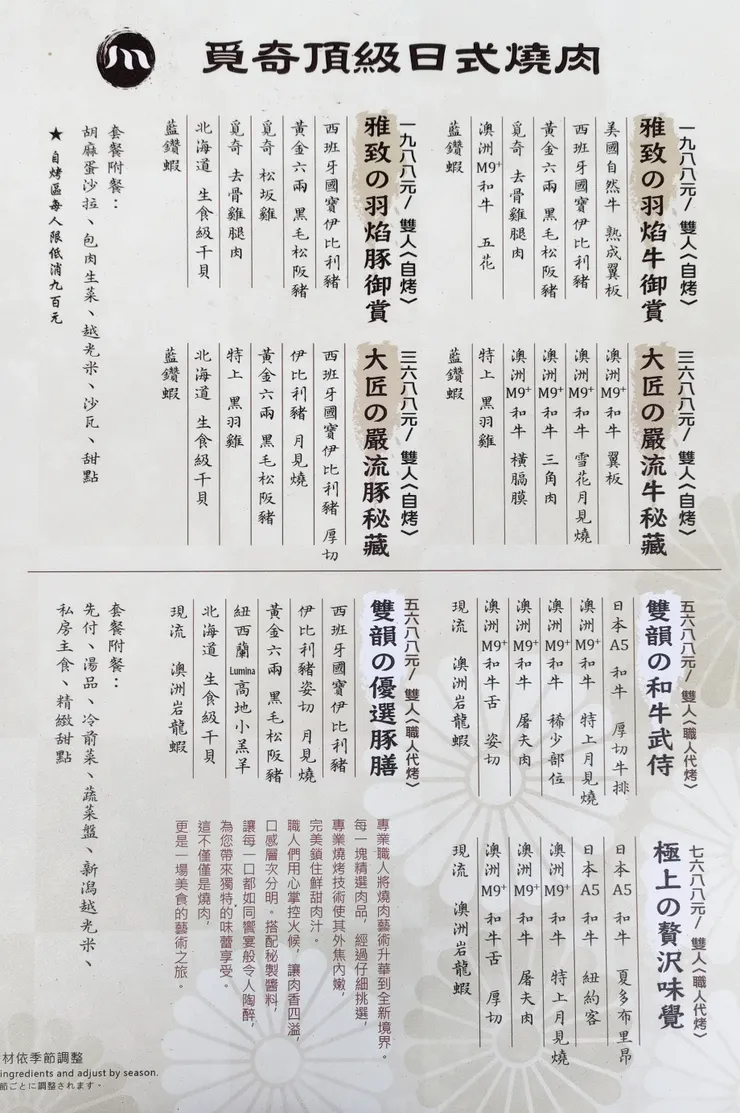 覓奇頂級日式燒肉
一九八八元/ 雙人〈自烤〉
雅致の羽焰牛御賞
美國自然牛 熟成翼板
西班牙國寶伊比利豬
黃金六兩 黑毛松阪豬
覓奇 去骨雞腿肉
澳洲M9+和牛 五花
藍鑽蝦
一九八八元/ 雙人〈自烤〉
雅致の羽焰豚御賞
西班牙國寶伊比利豬
黃金六兩 黑毛松阪豬
覓奇 松坂雞
覓奇 去骨雞腿肉
北海道 生食級干貝
藍鑽蝦
套餐附餐：
胡麻蛋沙拉、包肉生菜、越光米、沙瓦、甜點
★ 自烤區每人限低消九百元
三六八八元/ 雙人〈自烤〉
大匠の嚴流牛秘藏
澳洲M9+和牛 翼板
澳洲M9+和牛 雪花月見燒
澳洲M9+和牛 三角肉
澳洲M9+和牛 橫膈膜
特上 黑羽雞
藍鑽蝦
三六八八元/ 雙人〈自烤〉
大匠の嚴流豚秘藏
西班牙國寶伊比利豬 厚切
伊比利豬 月見燒
黃金六兩 黑毛松阪豬
特上 黑羽雞
北海道 生食級干貝
藍鑽蝦
五六八八元/ 雙人〈職人代烤〉
雙韻の和牛武侍
日本A5 和牛 厚切牛排
澳洲M9+和牛 特上月見燒
澳洲M9+和牛 稀少部位
澳洲M9+和牛 屠夫肉
澳洲M9+和牛舌 姿切
現流 澳洲岩龍蝦
五六八八元/ 雙人〈職人代烤〉
雙韻の優選豚膳
西班牙國寶伊比利豬
伊比利豬姿切 月見燒
黃金六兩 黑毛松阪豬
紐西蘭Lumina高地小羔羊
北海道 生食級干貝
現流 澳洲岩龍蝦
套餐附餐：
先付、湯品、冷前菜、蔬菜盤、新潟越光米、
私房主食、精緻甜點
七六八八元/ 雙人〈職人代烤〉
極上の贅沢味覺
日本A5 和牛 夏多布里昂
日本A5 和牛 紐約客
澳洲M9+和牛 特上月見燒
澳洲M9+和牛 屠夫肉
澳洲M9+和牛舌 厚切
現流 澳洲岩龍蝦
專業職人將燒肉藝術升華到全新境界。
每一塊精選肉品，經過仔細挑選，
專業燒烤技術使其外焦內嫩，
完美鎖住鮮甜肉汁。
職人們用心掌控火候，讓肉香四溢，
口感層次分明。搭配秘製醬料，
讓每一口都如同饗宴般令人陶醉，
為您帶來獨特的味蕾享受。
這不僅僅是燒肉，
更是一場美食的藝術之旅。
材依季節調整
ingredients and adjust by season.
節ごとに調整されます。